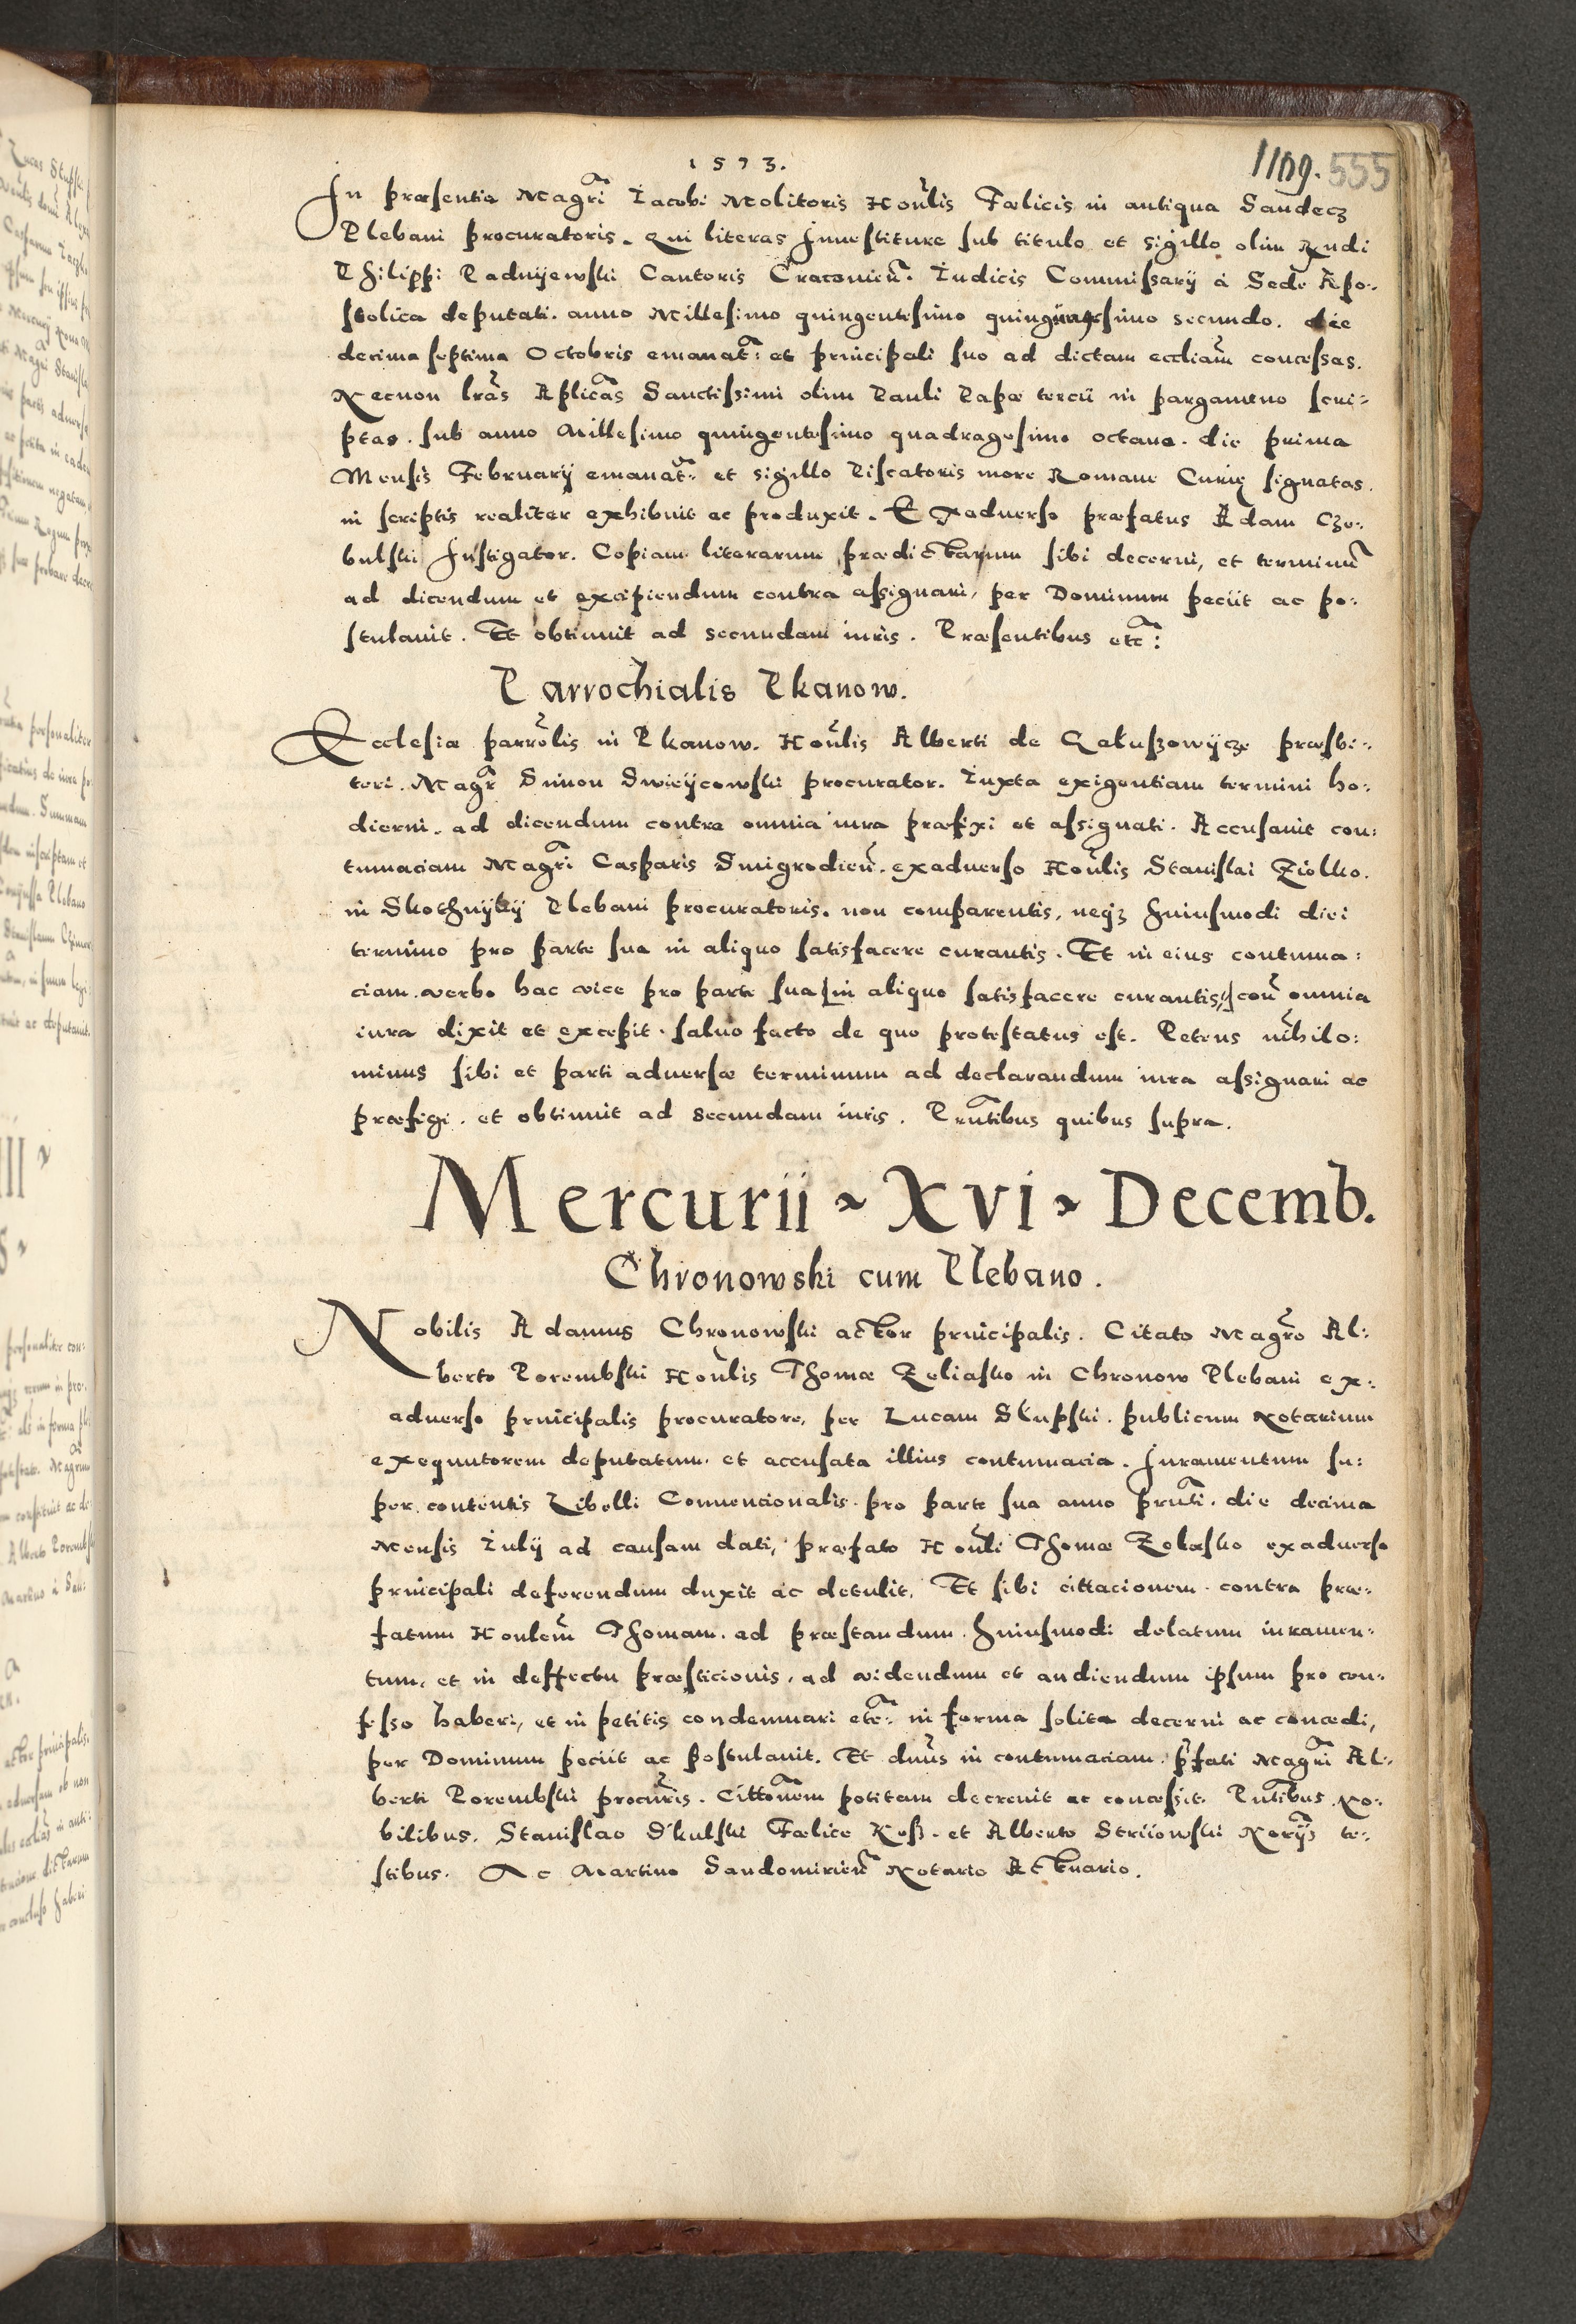 1573.
1109. 555
In præsentia Magrĩ Iacobi Molitoris Honũlis Fœlicis in antiqua Sandecz
Plebani procuratoris. Qui literas Inuestiture sub titulo et sigillo olim Rndi
Philippi Padnyewski Cantoris Cracouieñ. Iudicis Commissarij à Sede Apo:
stolica deputati. anno Millesimo quingentesimo quinquagesimo secundo. die
decima septima Octobris emanat: et principali suo ad dictam eccliam concessas.
Necnon lrãs Aplicãs Sanctissimi olim Pauli Papæ tercii in pargameno scri:
ptas. sub anno Millesimo quingentesimo quadragesimo octauo. die prima
Mensis February emanat: et sigillo Piscatoris more Romane Curię signatas.
in scriptis realiter exhibuit ac produxit. Exaduerso præfatus Adam Czo:
bulski Instigator. Copiam literarum prædictarum sibi decerni, et terminũ
ad dicendum et excipiendum contra assignari, per Dominum peciit ac po:
stulauit. Et obtinuit ad secundam iuris. Præsentibus etc:
Parrochialis Pkanow.
Ecclesiæ parrõlis in Pkanow. Honũlis Alberti de Galuszowycze præsbi:
teri. Magr Simon Swieycowski procurator. Iuxta exigentiam termini ho:
dierni. ad dicendum contra omnia iura præfixi et assignati. Accusauit con:
tumaciam Magrĩ Casparis Smigrodieñ. exaduerso Honũlis Stanislai Ziolko.
in Skothnyky Plebani procuratoris. non comparentis, neqz huiusmodi diei
termino pro parte sua in aliquo satisfacere curantis. Et in eius contuma:
ciam. verbo hac vice pro parte sua [in aliquo satisfacere curantis,] coñ omnia
iura dixit et excepit. saluo facto de quo protestatus est. Petens nihilo:
minus sibi et parti aduersæ terminum ad declarandum iura assignari ac
præfigi. et obtinuit ad secundam iuris. Prntibus quibus supra.
Mercurii ~ Xvi ~ Decemb.
Chronowski cum Plebano.
Nobilis Adamus Chronowski actor principalis. Citato Magrõ Al:
berto Porembski Honũlis Thomæ Zeliasko in Chronow Plebani ex:
aduerso principalis procuratore, per Lucam Slupski. publicum Notarium
exequutorem deputatum. et accusata illius contumacia. Iuramentum su:
per contentis Libelli Conuencionalis. pro parte sua anno prñti. die decima
Mensis Iulij ad causam dati, præfato Honũli Thomæ Zelasko exaduerso
principali deferendum duxit ac detulit. Et sibi cittacionem. contra præ:
fatum Honulem Thomam. ad præstandum. huiusmodi delatum iuramen:
tum, et in deffectu præsticionis, ad videndum et audiendum ipsum pro con:
fesso haberi, et in petitis condemnari etc: in forma solita decerni ac concedi,
per Dominum peciit ac postulauit. Et dnũs in contumaciam. pfati Magrĩ Al:
berti Porembski procũris. Cittonem petitam decreuit ac concessit. Pntibus. No:
bilibus. Stanislao Skulski Fœlice Koss. et Alberto Striiowski Norijs te:
stibus. Ac Martino Sandomirieñ Notario Actuario.